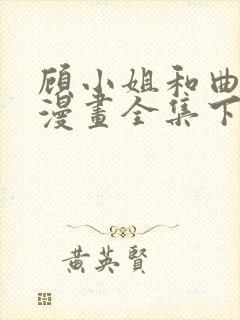 顾小姐和曲
漫畫全集下
黄英賢